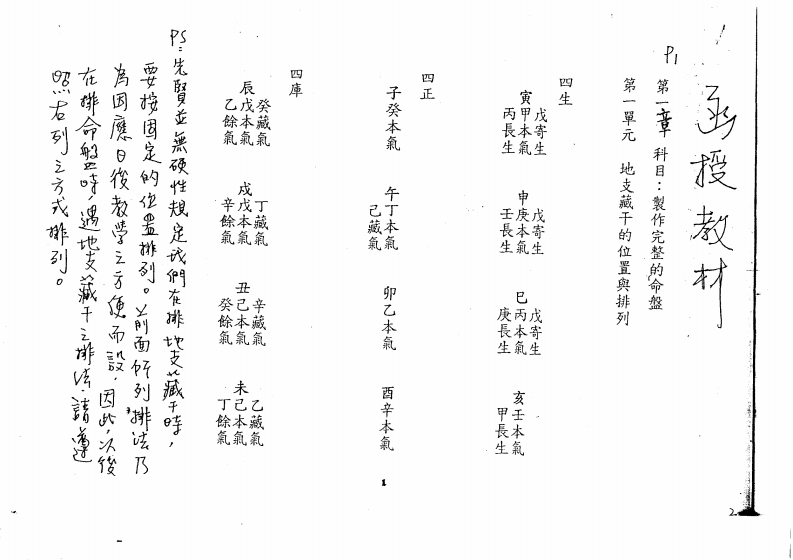 函授教材
P1
第一章 科目：製作完整的命盤
第一單元 地支藏干的位置與排列
四生
戊寄生
寅甲本氣
丙長生
戊寄生
申庚本氣
壬長生
戊寄生
巳丙本氣
庚長生
亥壬本氣
甲長生
四正
子癸本氣
午丁本氣
己藏氣
卯乙本氣
酉辛本氣
四庫
癸藏氣
辰戊本氣
乙餘氣
丁藏氣
戍戊本氣
辛餘氣
辛藏氣
丑己本氣
癸餘氣
乙藏氣
未己本氣
丁餘氣
PS：先賢並無硬性規定我們在排地支藏干時，
要按固定的位置排列。前面所列排法乃
為因應日後教學之方便而設，因此，以後
在排命盤時，遇地支藏干之排法，請遵
照右列之方式排列。
1
2